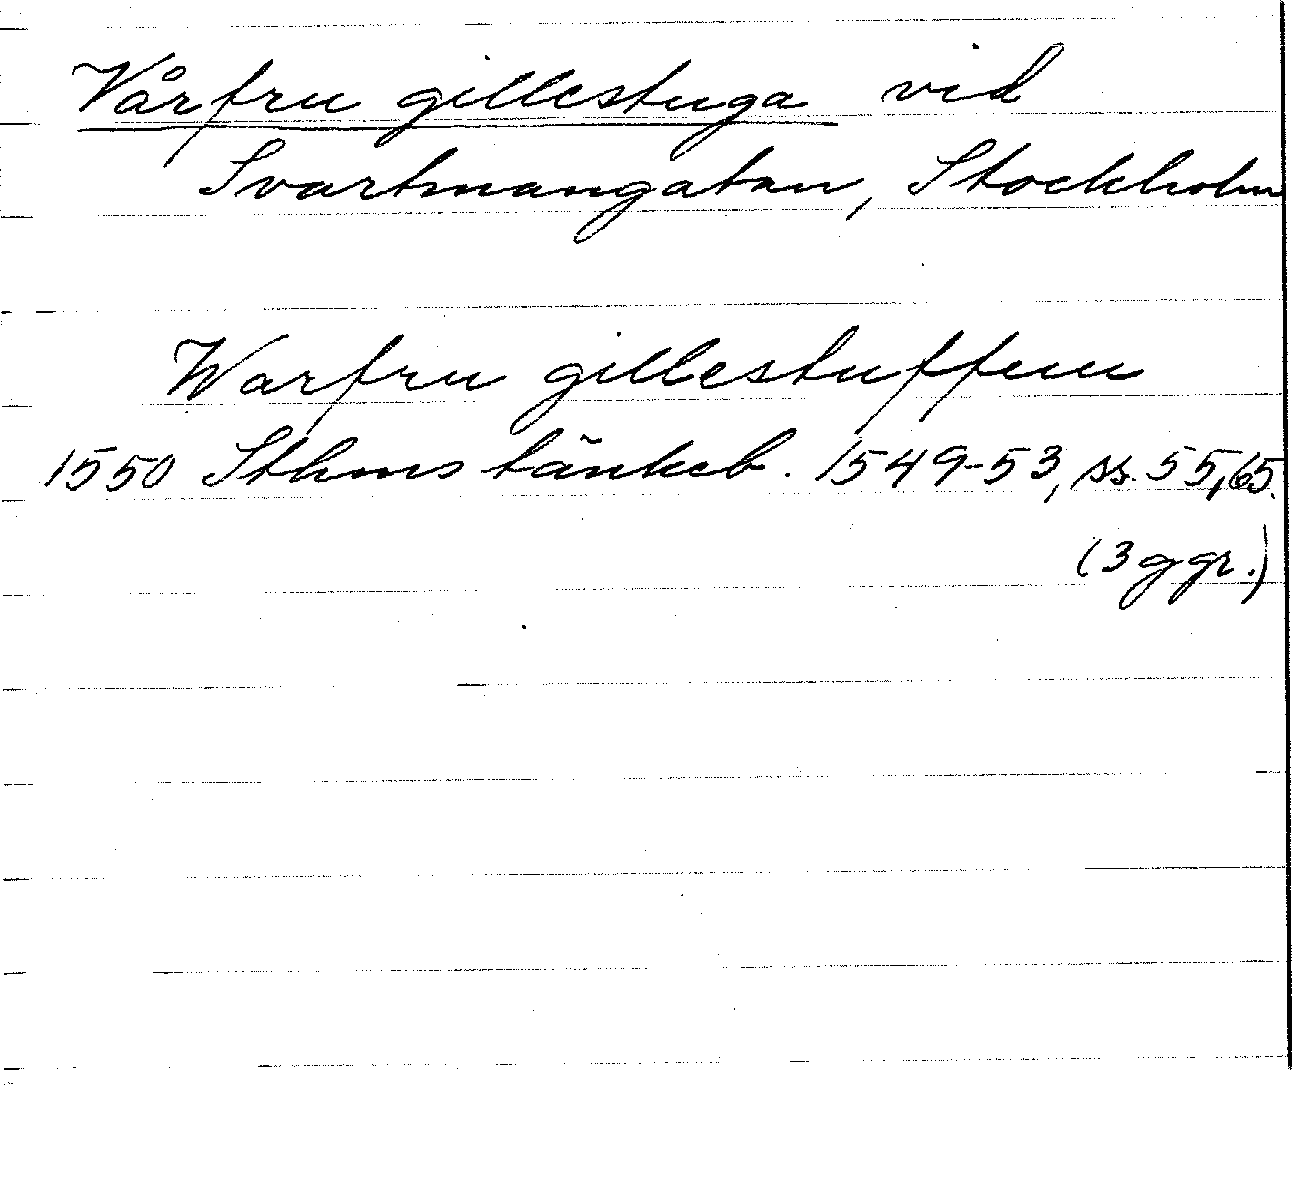 Vårfru gillestuga vid
Svartmangatan, Stockholm
Warfru gillestuffuu
1550 Sthms tänkeb. 1549-53, ss. 55, 65.
(3 ggr.)